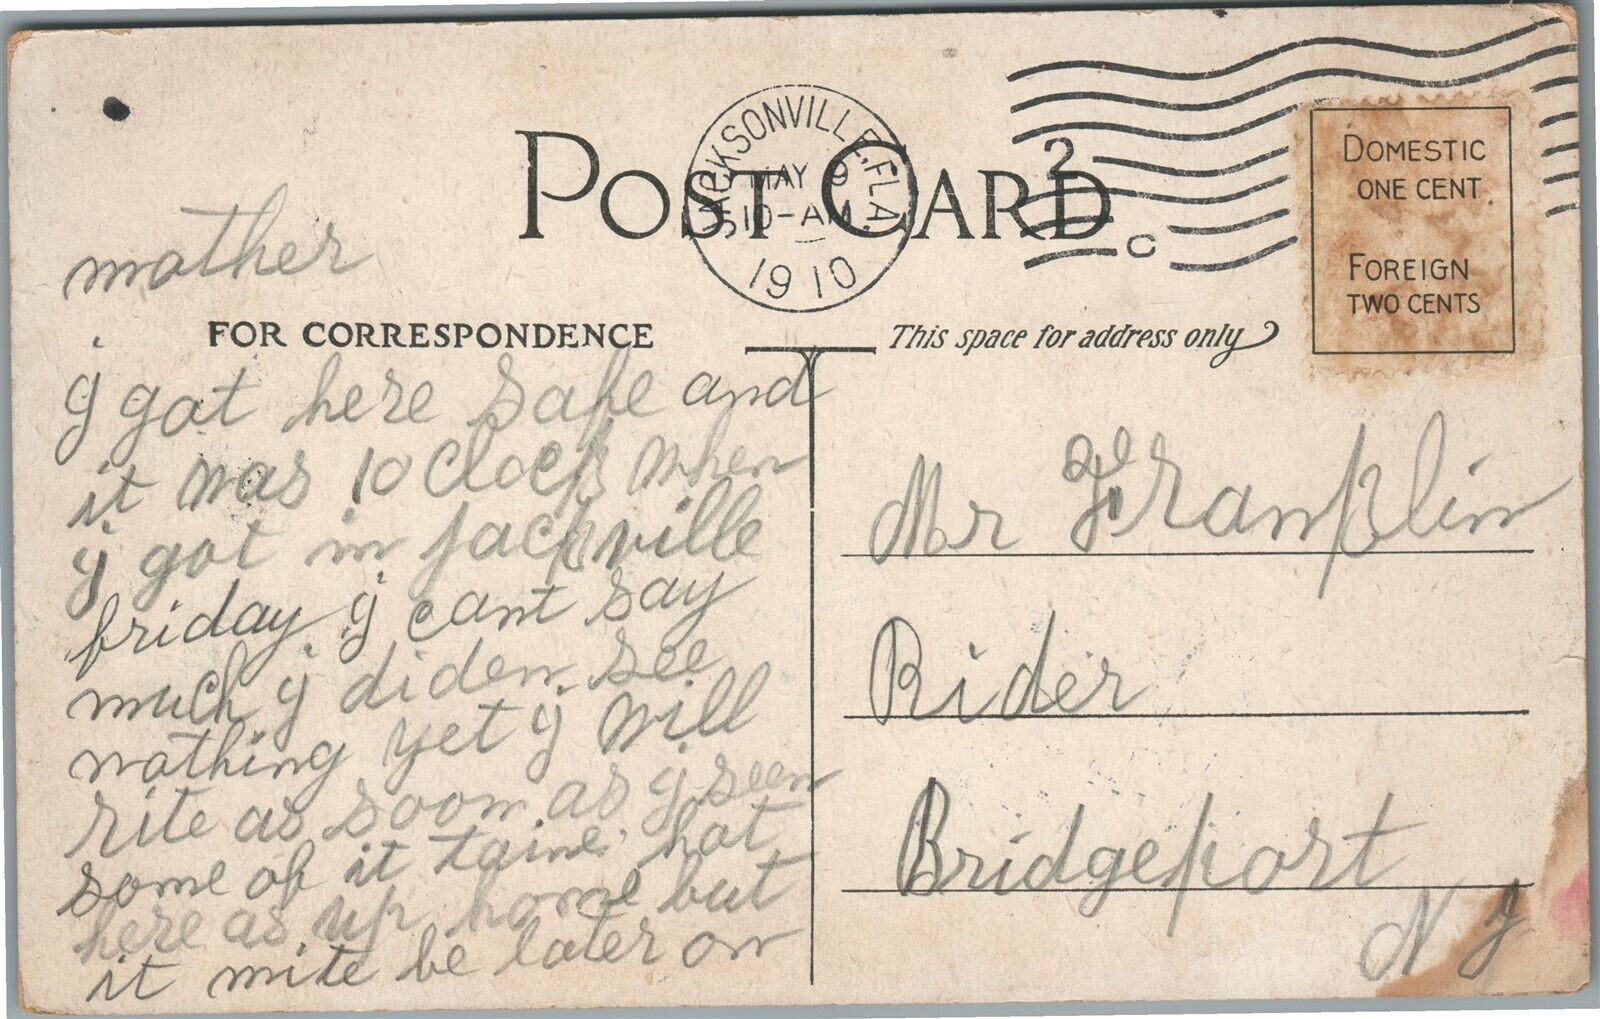 POST CARD
JACKSONVILLE, FLA.
MAY 9
510-AM
1910
2
C
DOMESTIC
ONE CENT.
FOREIGN
TWO CENTS
FOR CORRESPONDENCE
This space for address only
mother
i got here safe and
it was 10 Clock when
i got in jackville
friday i cant say
much i diden see
nothing yet i will
rite as soon as i seen
some of it taine hot
here as up home but
it mite be later on
Mr Franklin
Rider
Bridgeport
N J